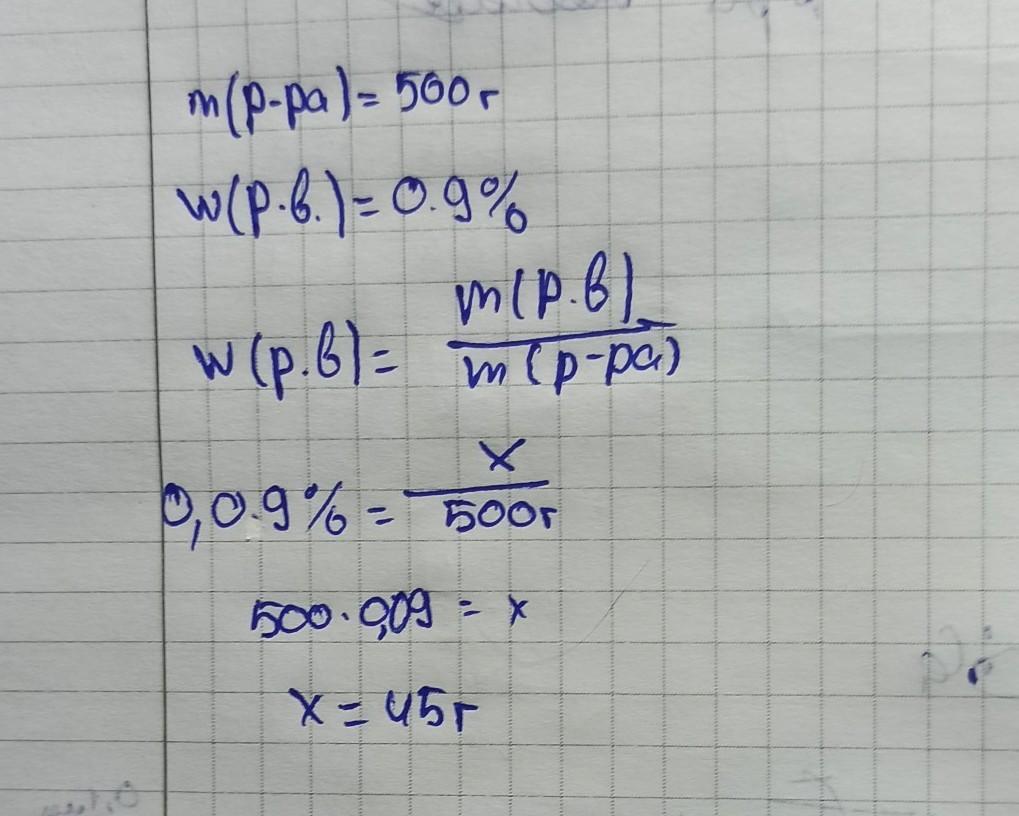 m(р-ра)= 500г
w(р.в.)= 0.9%
w(р.в)= m(р.в) / m(р-ра)
0,0.9% = x / 500г
500·0,09 = x
x = 45г